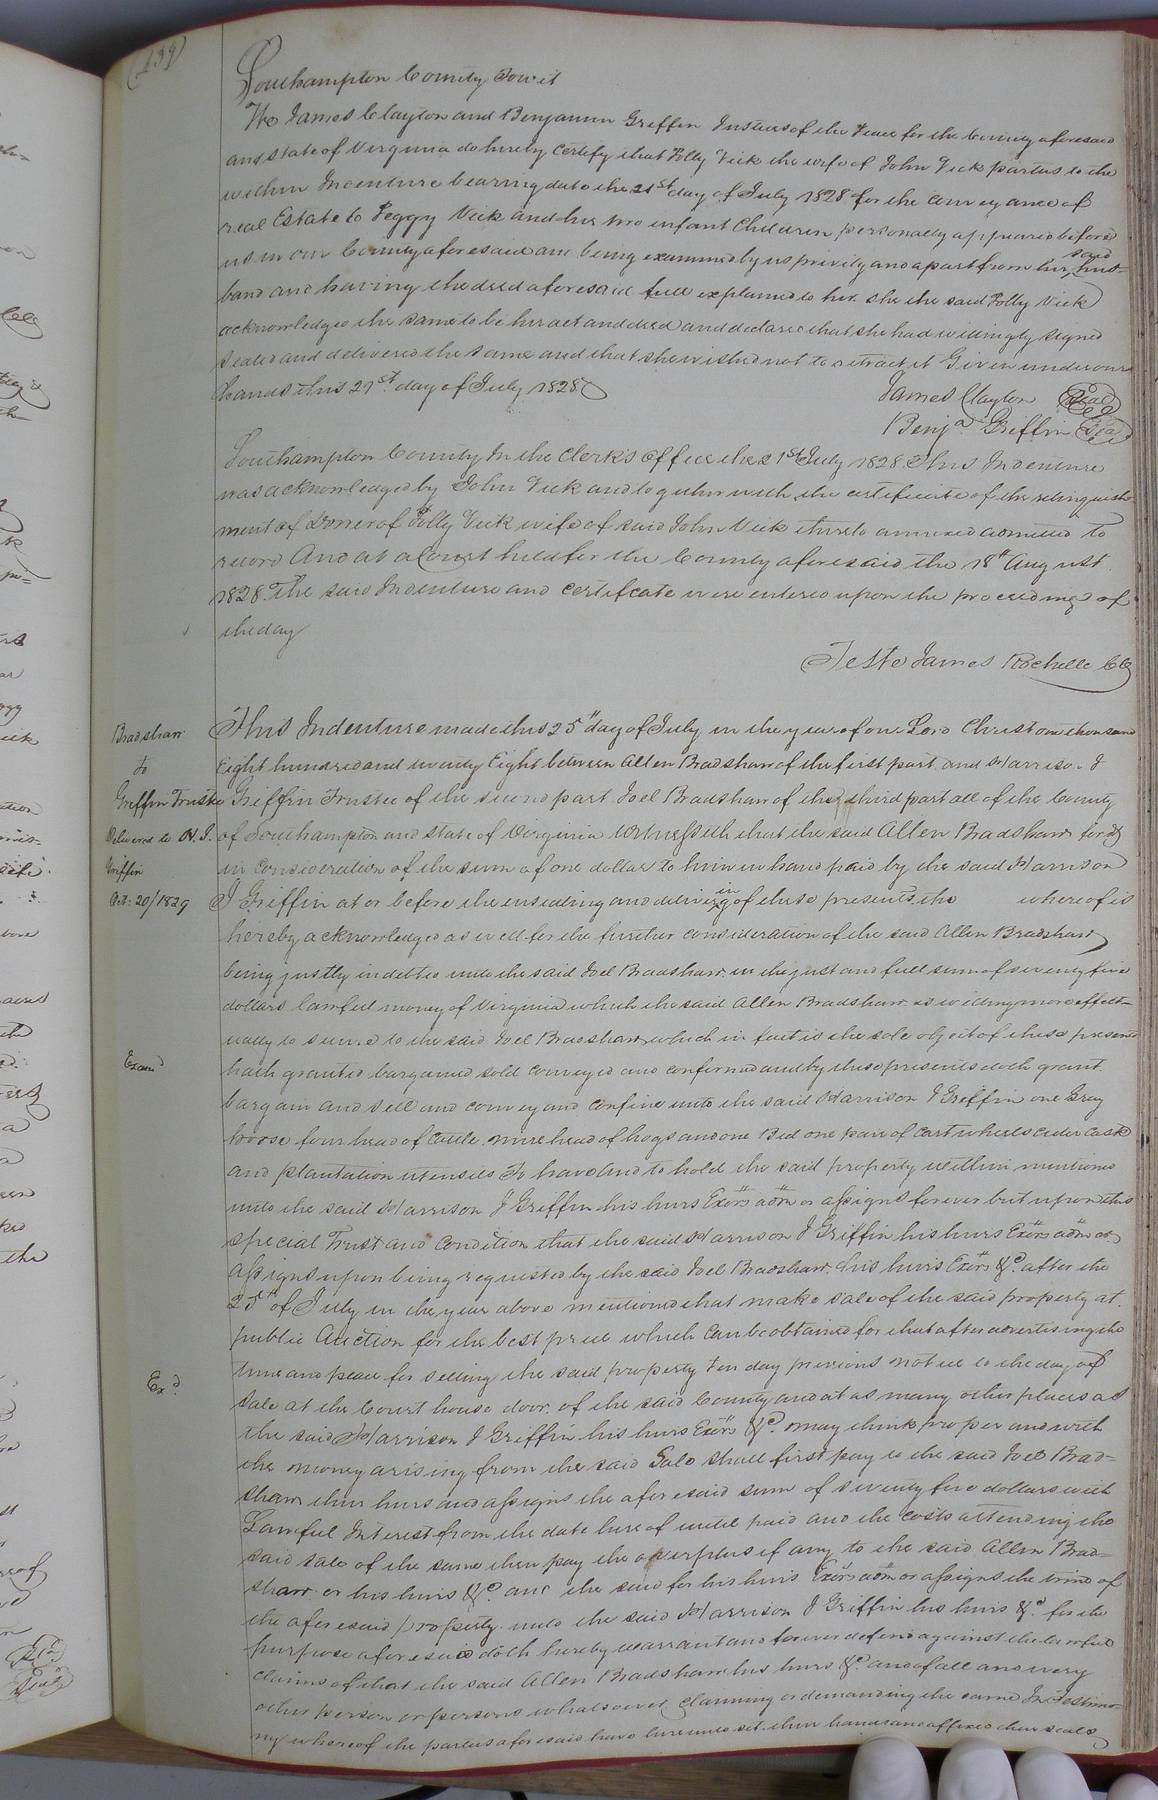 (139)
Southampton County Towit
We James Clayton and Benjamin Griffin Justices of the Peace for the County aforesaid
and State of Virginia do hereby Certify that Polly Vick the wife of John Vick parties to the
within Indenture bearing date the 21st day of July 1828 for the conveyance of
real Estate to Peggy Vick and her two infant Children personally appeared before
us in our County aforesaid and being examined by us privily and apart from her said hus=
band and having the deed aforesaid full explained to her she the said Polly Vick
acknowledged the same to be her act and deed and declared that she had willingly signed
Sealed and delivered the same and that she wished not to retract it Given under our
hands this 21st day of July 1828
James Clayton Seal
Benja Griffin Seal
Southampton County In the Clerk's Office the 21st July 1828 This Indenture
was acknowledged by John Vick and together with the certificate of the relinquish
ment of Dower of Polly Vick wife of said John Vick thereto annexed admitted to
record And at a Court held for the County aforesaid the 18th August
1828 The said Indenture and certifcate were entered upon the proceedings of
the day
Teste James Rochelle Clk
Bradshaw
to
Griffin Trustee
Delivered to H. J.
Griffin
Oct. 20/1829
This Indenture made this 25th day of July in the year of our Lord Christ one thousand
Eight hundred and twenty Eight between Allen Bradshaw of the first part and Harrison J
Griffin Trustee of the second part Joel Bradshaw of the third part all of the County
of Southampton and State of Virginia Witnesseth that the said Allen Bradshaw for &
in consideration of the sum of one dollar to him in hand paid by the said Harrison
J Griffin at or before the ensealing and delivering of these presents the whereof is
hereby acknowledged as well for the further consideration of the said Allen Bradshaw
being justly indebted unto the said Joel Bradshaw in the just and full sum of seventy five
dollars lawful money of Virginia which the said Allen Bradshaw is willing more effect=
ually to secure to the said Joel Bradshaw which in fact is the sole object of these presents
Examd
hath granted bargained sold conveyed and confirmed and by these presents doth grant
bargain and sell and convey and confirm unto the said Harrison J Griffin one Gray
horse four head of Cattle nine head of hogs and one Bed one pair of cart wheels cider cask
and plantation utensils To have and to hold the said property within mentioned
unto the said Harrison J Griffin his heirs Exors adm or assigns forever but upon this
special Trust and Condition that the said Harrison J Griffin his heirs Exors adm or
assigns upon being requested by the said Joel Bradshaw his heirs Exors &c. after the
25th of July in the year above mentioned that make sale of the said property at
public Auction for the best price which can be obtained for that after advertising the
time and place for selling the said property ten day previous notice to the day of
Exd
Sale at the Court house door of the said County and at as many other places as
the said Harrison J Griffin his heirs Exors &c. may think proper and with
the money arising from the said Sale shall first pay to the said Joel Brad=
shaw their heirs and assigns the aforesaid sum of seventy five dollars with
Lawful Interest from the date hereof until paid and the costs attending the
said sale of the same then pay the overplus if any to the said Allen Brad=
shaw or his heirs &c. and the said for his heirs Exors adm or assigns the of
the aforesaid property unto the said Harrison J Griffin his heirs &c. for the
purpose aforesaid doth hereby warrant and forever defend against the lawful
claims of that the said Allen Bradshaw his heirs &c. and of all and every
other person or persons whatsoever claiming or demanding the same In Testimo=
ny whereof the parties aforesaid have hereunto set their hands and affixed their seals